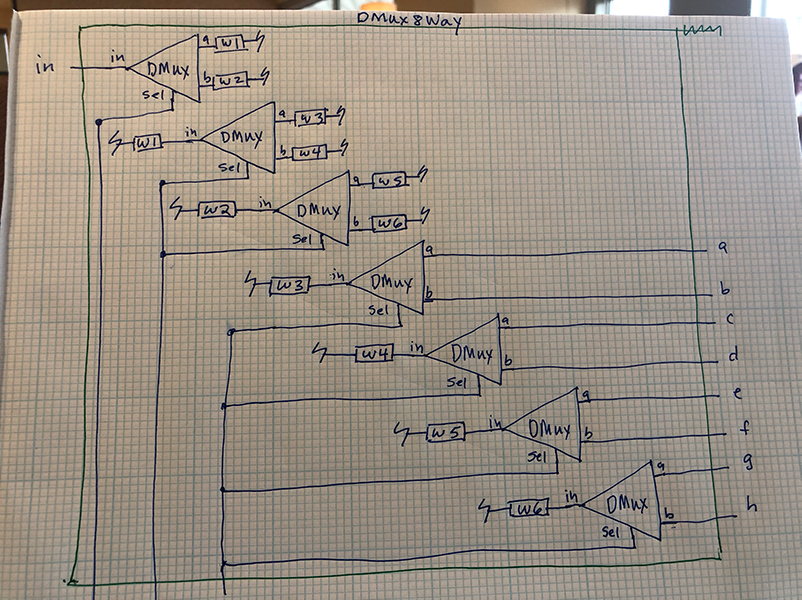 DMux8Way
in in DMux a w1
b w2
sel
w1 in DMux a w3
b w4
sel
w2 in DMux a w5
b w6
sel
w3 in DMux a a
b b
sel
w4 in DMux a c
b d
sel
w5 in DMux a e
b f
sel
w6 in DMux a g
b h
sel